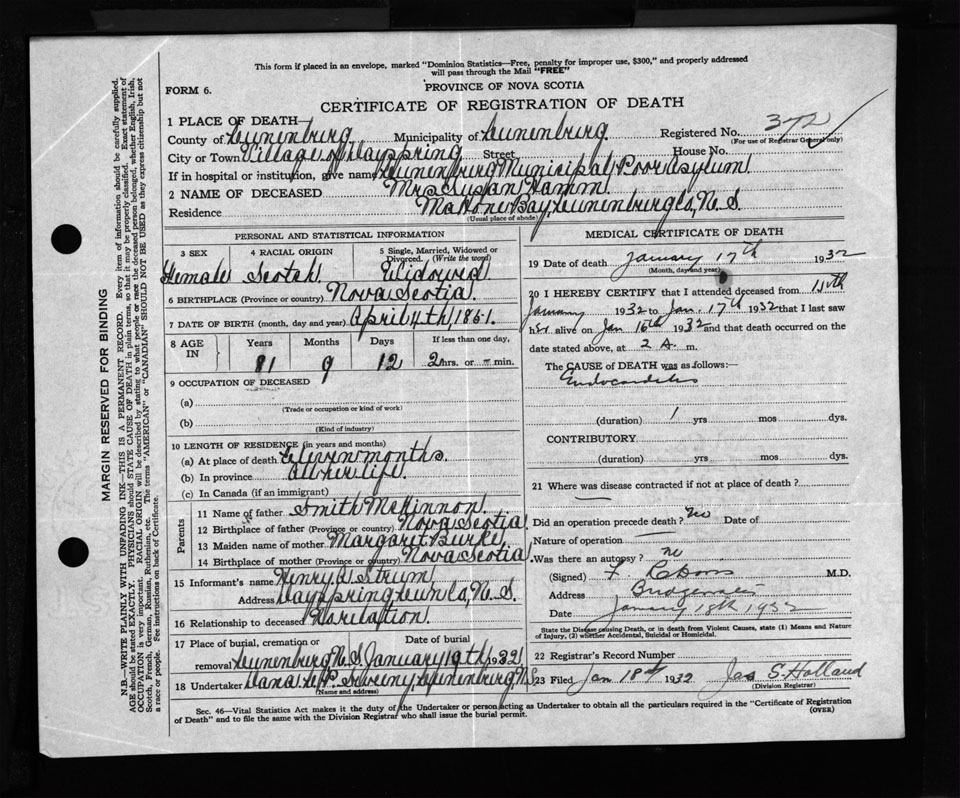 This form if placed in an envelope, marked "Dominion Statistics—Free, penalty for improper use, $300," and properly addressed
will pass through the Mail "FREE"
FORM 6.
PROVINCE OF NOVA SCOTIA
CERTIFICATE OF REGISTRATION OF DEATH
1 PLACE OF DEATH—
County of Lunenburg Municipality of Lunenburg Registered No. 372
(For use of Registrar General only)
City or Town Village of Dayspring Street House No.
If in hospital or institution, give name Lunenburg Municipal Poor Asylum
2 NAME OF DECEASED Mrs Susan Hamm
Residence Mahone Bay, Lunenburg Co, N. S.
(Usual place of abode)
PERSONAL AND STATISTICAL INFORMATION
3 SEX 4 RACIAL ORIGIN 5 Single, Married, Widowed or Divorced. (Write the word)
Female Scotch Widowed
6 BIRTHPLACE (Province or country) Nova Scotia
7 DATE OF BIRTH (month, day and year) April 4th, 1851.
8 AGE IN Years Months Days If less than one day,
81 9 12 2 hrs. or min.
9 OCCUPATION OF DECEASED
(a)
(Trade or occupation or kind of work)
(b)
(Kind of industry)
10 LENGTH OF RESIDENCE (in years and months)
(a) At place of death Eleven months.
(b) In province All her life.
(c) In Canada (if an immigrant)
Parents
11 Name of father Smith McKinnon
12 Birthplace of father (Province or country) Nova Scotia
13 Maiden name of mother Margaret Burke
14 Birthplace of mother (Province or country) Nova Scotia
15 Informant's name Henry A Strum
Address Dayspring Lun Co, N. S.
16 Relationship to deceased No relation.
17 Place of burial, cremation or removal Date of burial
Lunenburg N.S. January 19th, 1932
18 Undertaker Dana L. P. Sweeny, Lunenburg, N.S
(Name and address)
MEDICAL CERTIFICATE OF DEATH
19 Date of death January 17th 1932
(Month, day and year)
20 I HEREBY CERTIFY that I attended deceased from 11th
January 1932 to Jan. 17th 1932 that I last saw
her alive on Jan 16th 1932 and that death occurred on
date stated above, at 2 A. m.
The CAUSE OF DEATH was as follows:—
Endocarditis
(duration) 1 yrs mos dys.
CONTRIBUTORY
(duration) yrs mos dys.
21 Where was disease contracted if not at place of death?
Did an operation precede death? No Date of
Nature of operation
Was there an autopsy? no
(Signed) F. M.D.
Address Bridgewater
Date January 18th 1932
State the Disease causing Death, or in death from Violent Causes, state (1) Means and Nature of Injury, (2) whether Accidental, Suicidal or Homicidal.
22 Registrar's Record Number
23 Filed Jan 18th 1932 Jas S. Holland
(Division Registrar)
Sec. 46—Vital Statistics Act makes it the duty of the Undertaker or person acting as Undertaker to obtain all the particulars required in the "Certificate of Registration
of Death" and to file the same with the Division Registrar who shall issue the burial permit.
(OVER)
MARGIN RESERVED FOR BINDING
N.B.—WRITE PLAINLY WITH UNFADING INK—THIS IS A PERMANENT RECORD. Every item of information should be carefully supplied.
AGE should be stated EXACTLY. PHYSICIANS should STATE CAUSE OF DEATH in plain terms, so that it may be properly classified. Exact statement of
OCCUPATION is very important. RACIAL ORIGIN will be described by stating to what people or race the deceased person belonged, whether English, Irish,
Scotch, French, German, Russian, Ruthenian, etc. The terms "AMERICAN" or "CANADIAN" SHOULD NOT BE USED as they express citizenship but not
a race or people. See instructions on back of Certificate.